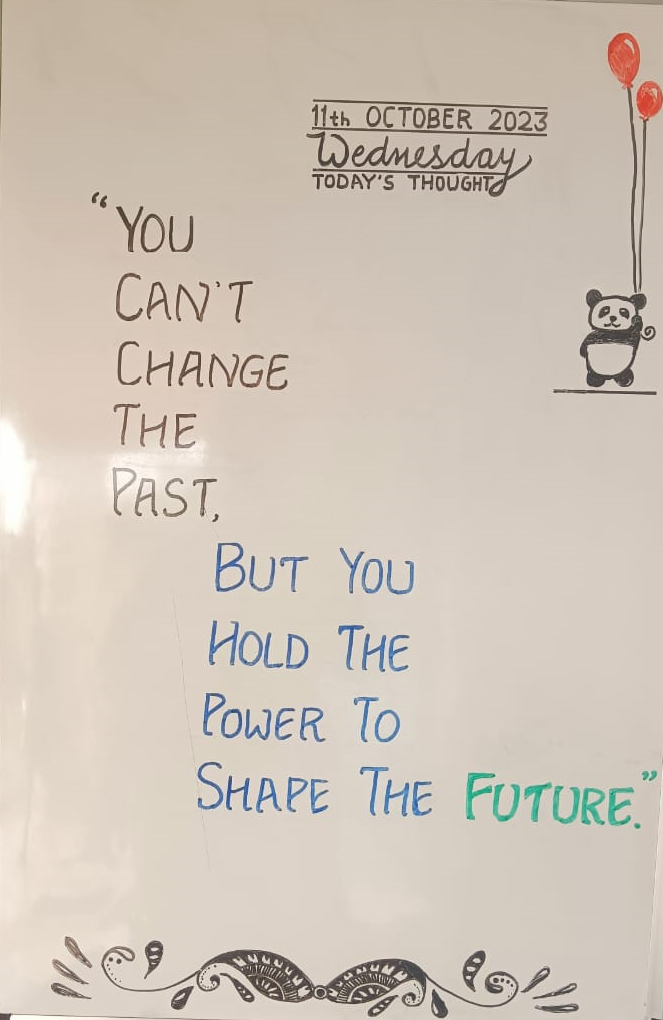 11th OCTOBER 2023
Wednesday
TODAY'S THOUGHT
“YOU
CAN'T
CHANGE
THE
PAST,
BUT YOU
HOLD THE
POWER TO
SHAPE THE FUTURE.”